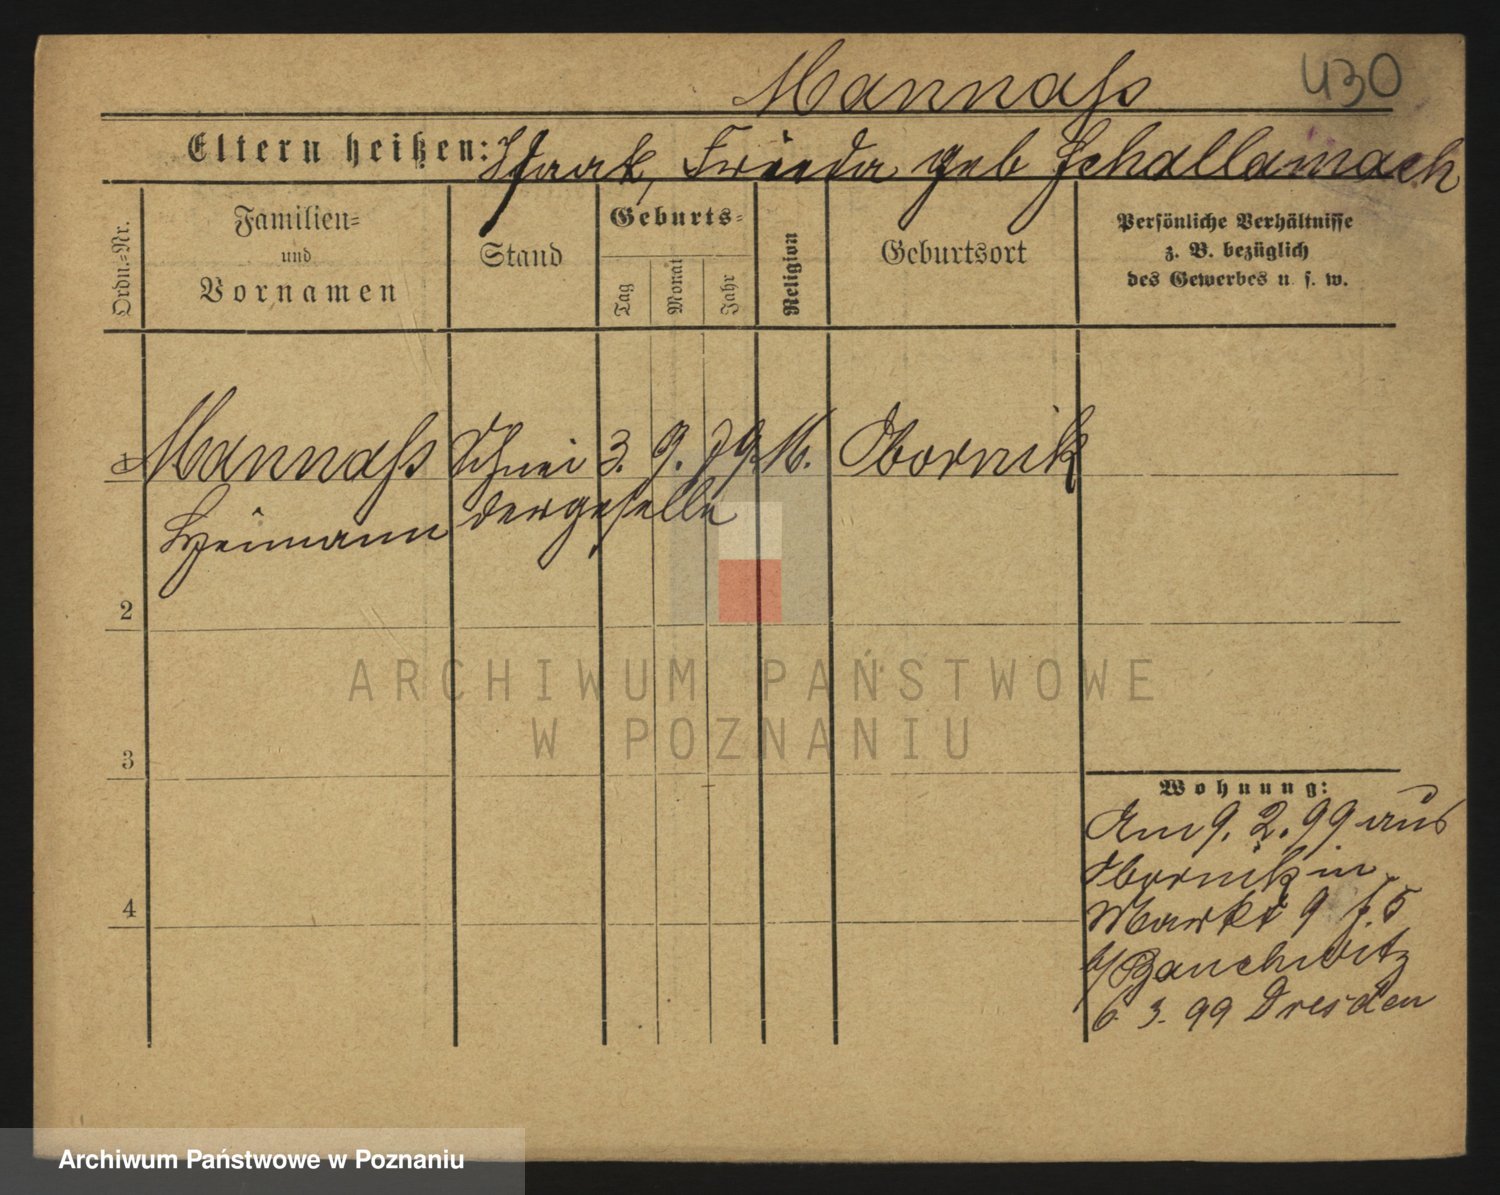 430
Mannaß
Eltern heißen: Isaak, Frieda geb Schallamach
Ordn.-Nr.
Familien-
und
Vornamen
Stand
Geburts-
Tag
Monat
Jahr
Religion
Geburtsort
Persönliche Verhältnisse
z. B. bezüglich
des Gewerbes u. s. w.
1 Mannaß Schnei 3. 9. 79. M. Obornik
Heimann dergeselle
2
3
4
Wohnung:
Am 9. 2. 99 aus
Obornik in
Markt 9 f. 5
b/ Bauchwitz
6. 3. 99 Dresden
ARCHIWUM PAŃSTWOWE
W POZNANIU
Archiwum Państwowe w Poznaniu